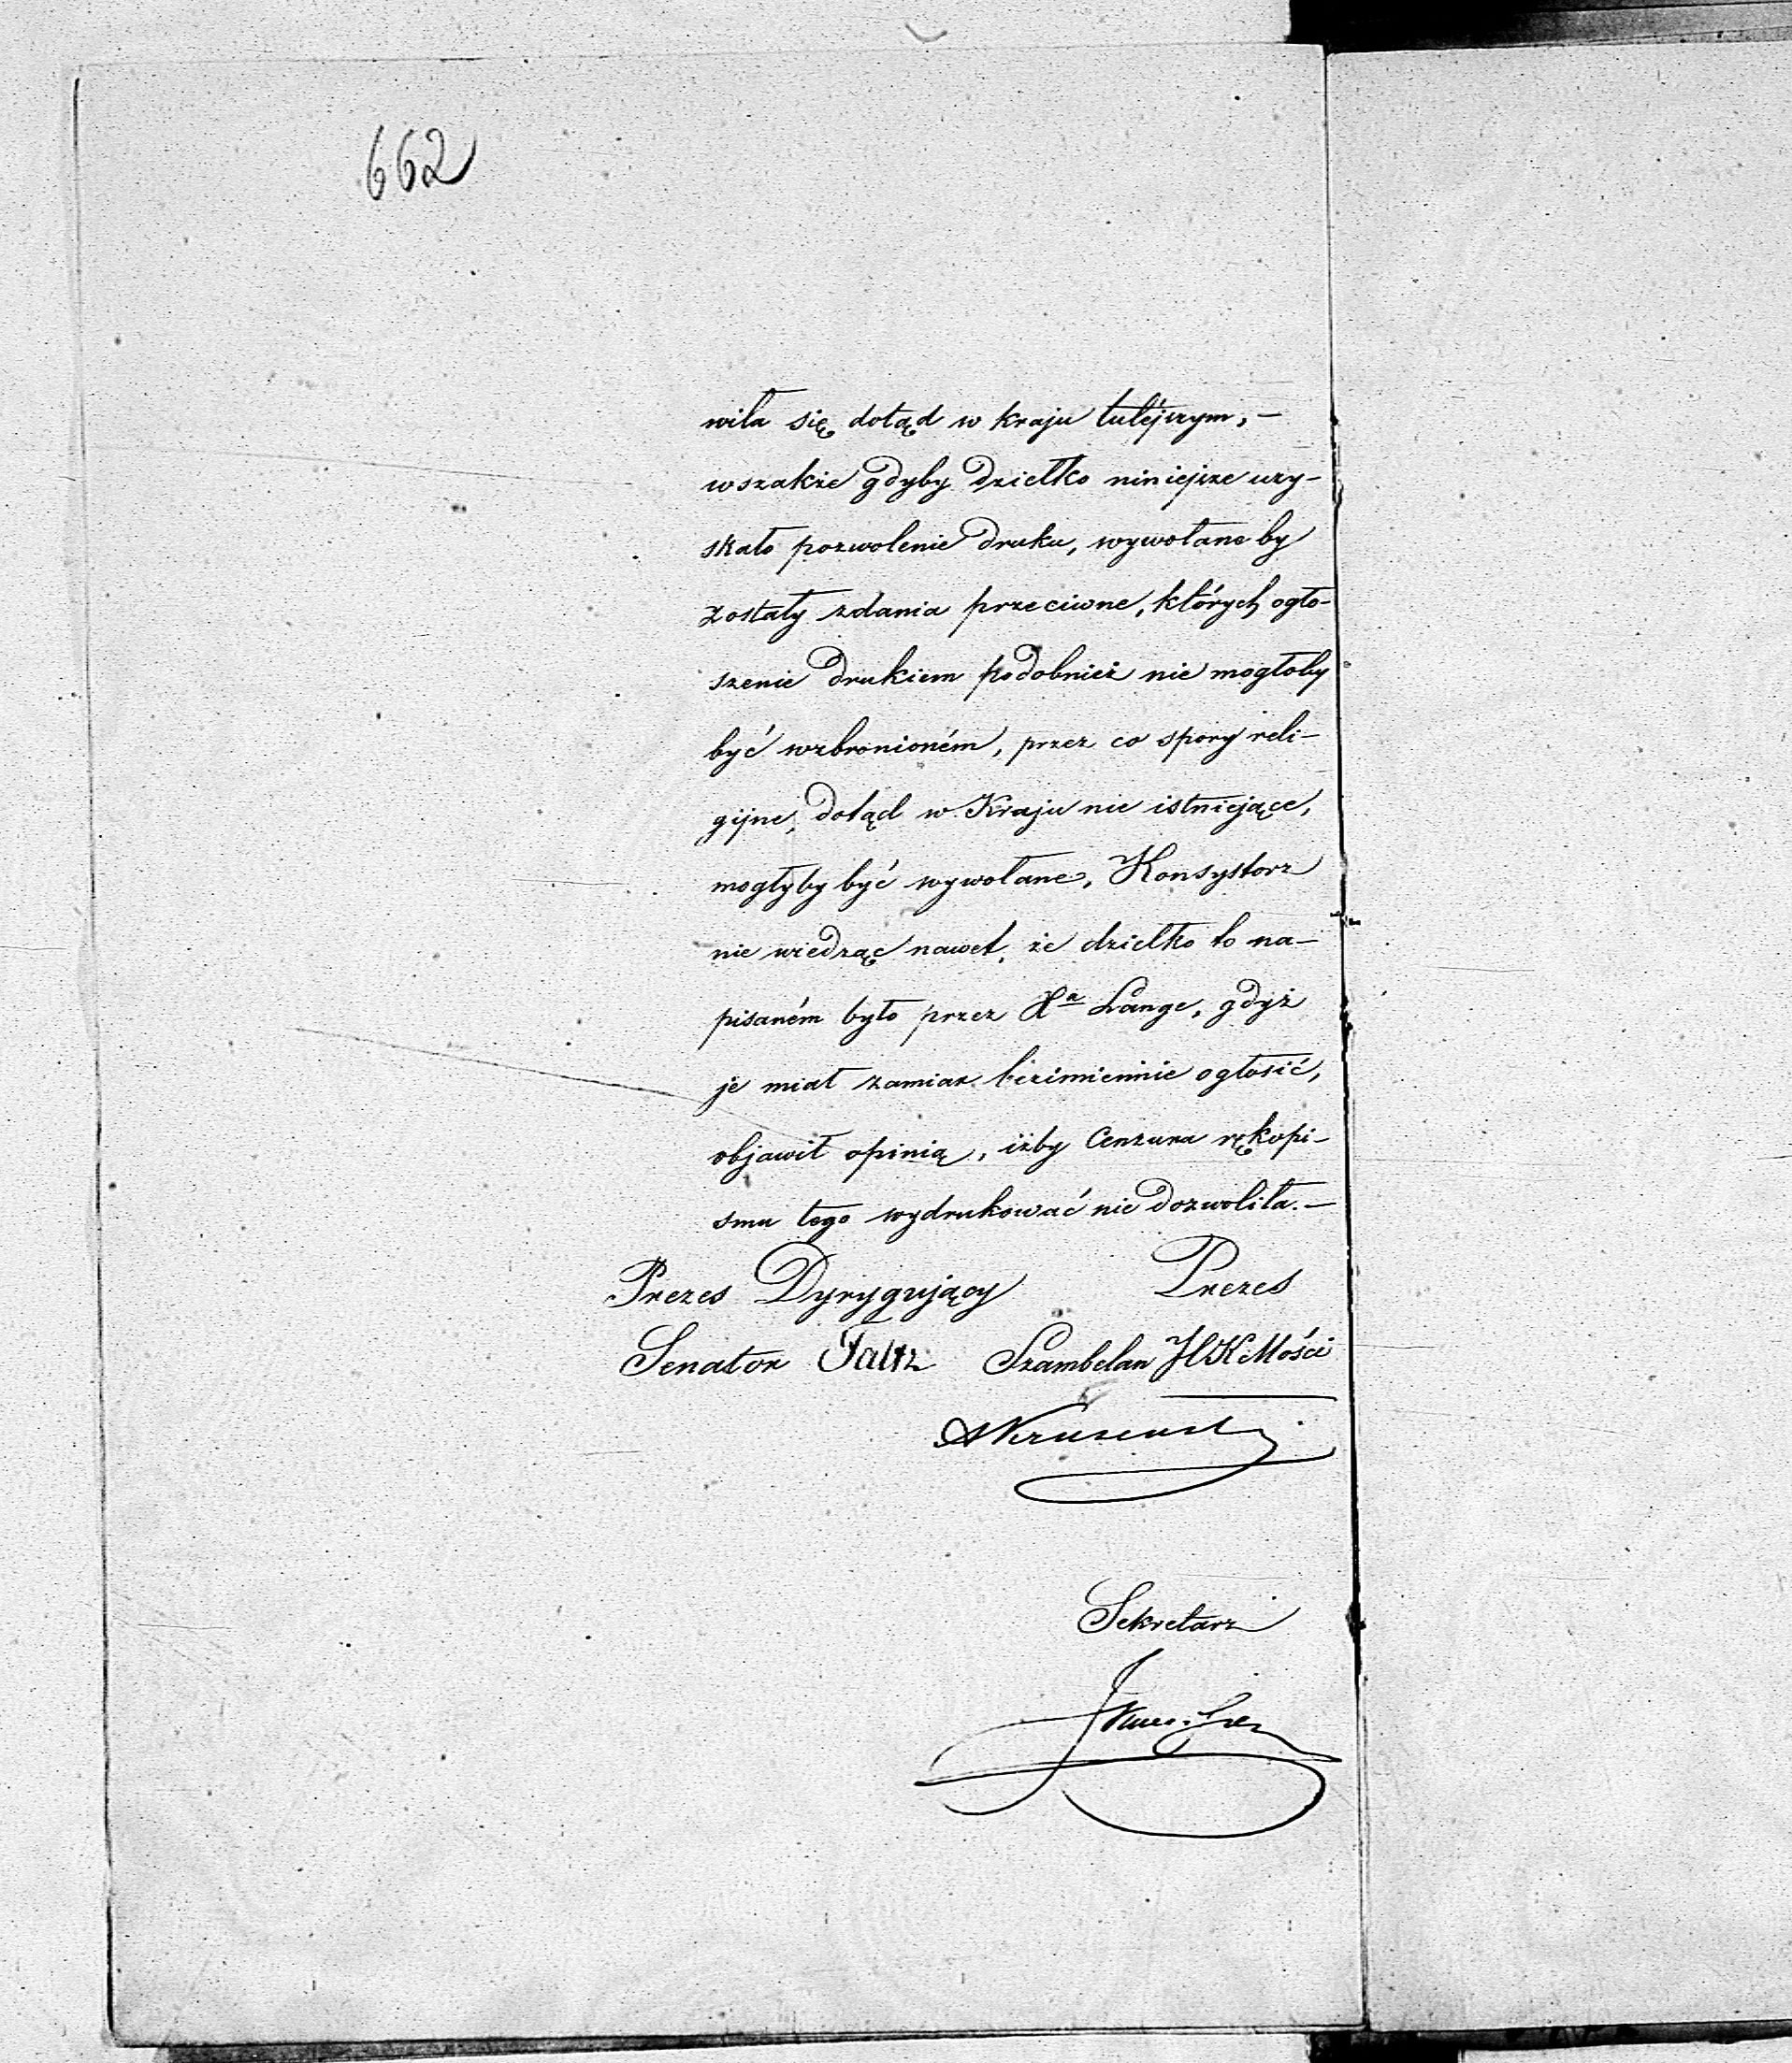 662
wiła się dotąd w kraju tutéjszym, —
wszakże gdyby dziełko niniejsze uzy-
skało pozwolenie druku, wywołane by
zostały zdania przeciwne, których ogło-
szenie drukiem podobnież nie mogłoby
być wzbronioném, przez co spory reli-
gijne, dotąd w Kraju nie istniejące,
mogłyby być wywołane, Konsystorz
nie wiedząc nawet, że dziełko to na-
pisaném było przez Xa Lange, gdyż
je miał zamiar bezimiennie ogłosić,
objawił opinią, iżby Cenzura rękopi-
smu tego wydrukować nie dozwoliła. —
Prezes Dyrygujący Prezes
Senator Faltz Szambelan JKMości
Sekretarz